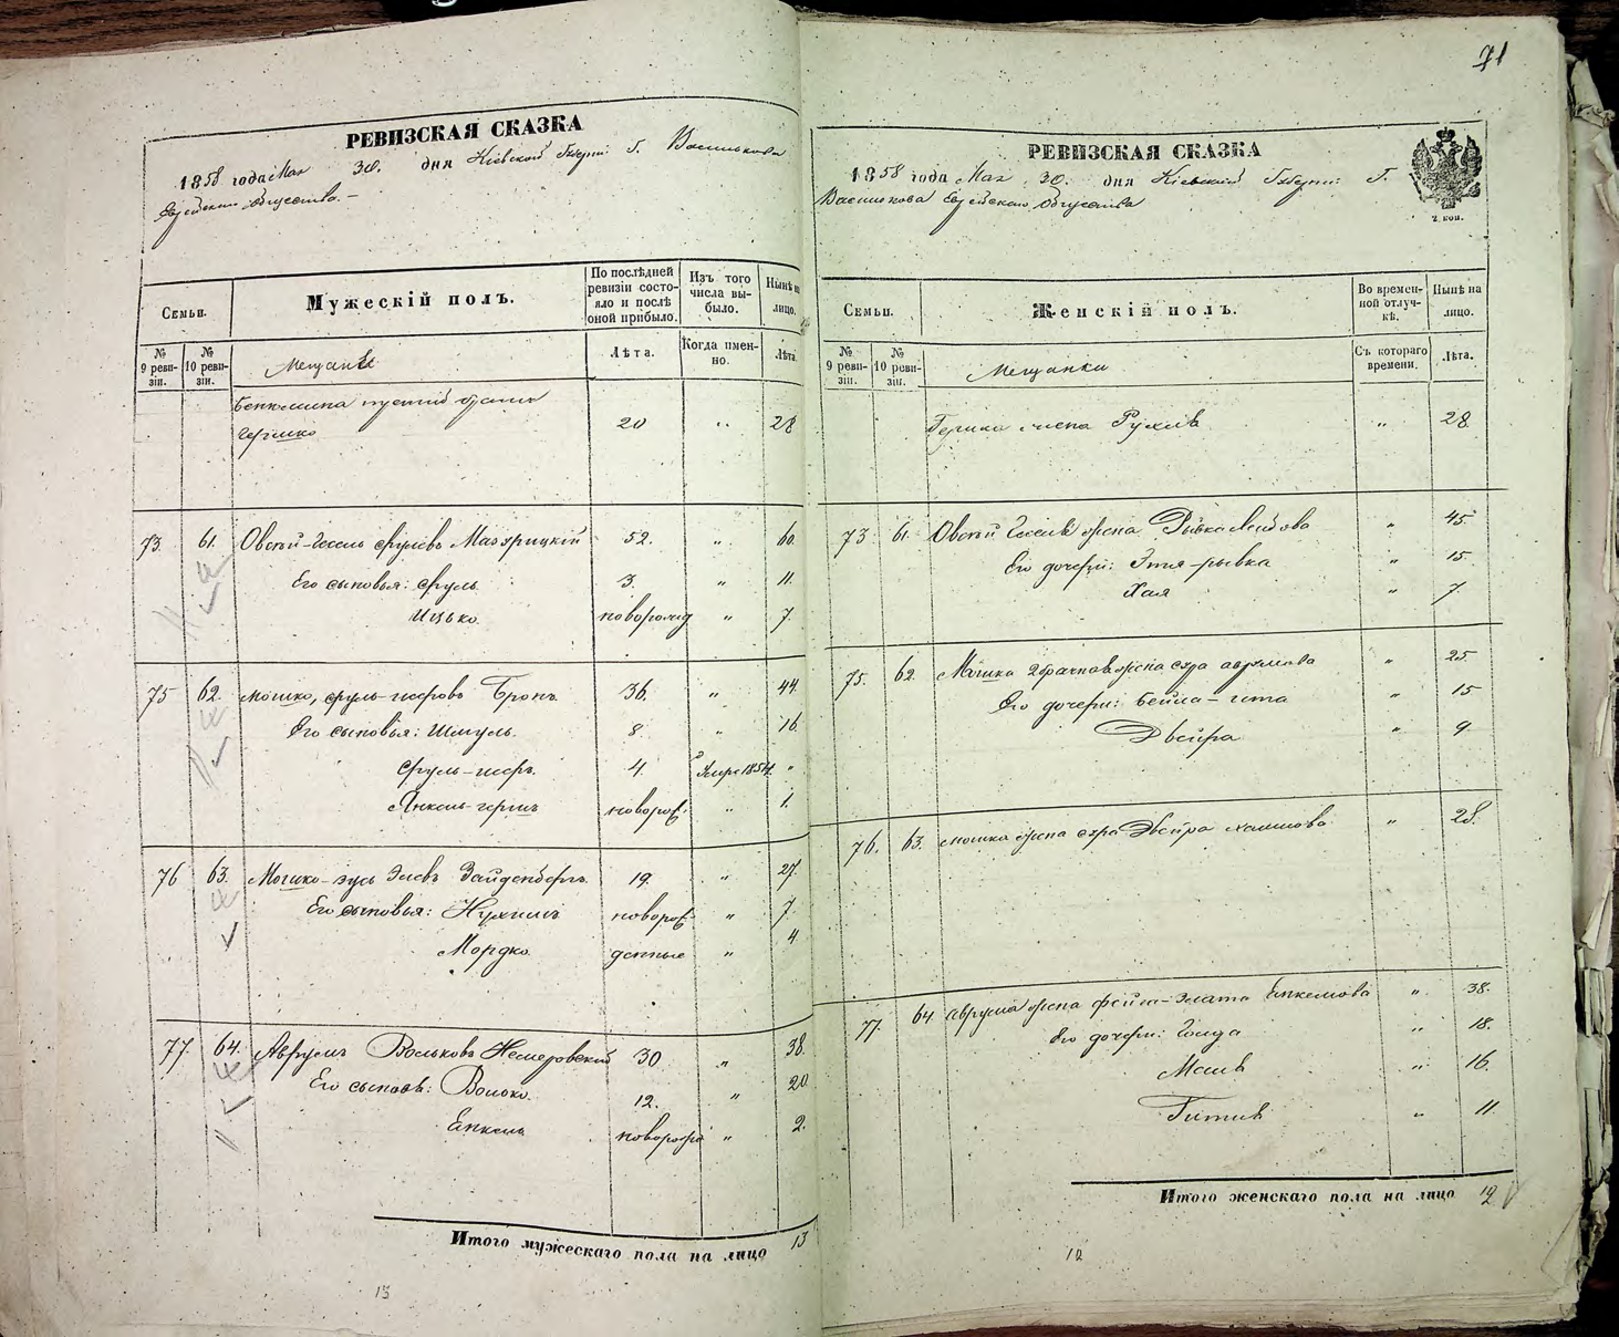 71
РЕВИЗСКАЯ СКАЗКА
1858 года Мая 30. дня Кіевской Губерніи Г. Василькова
Еврейскаго Общества.
Семьи.
Мужескій полъ.
По послѣдней ревизіи состояло и послѣ оной прибыло.
Изъ того числа выбыло.
Нынѣ на лицо.
№ 9 ревизіи.
№ 10 ревизіи.
Мещане
Лѣта.
Когда именно.
Лѣта
Гершко 20 " 28
73. 61. Овсѣй-Гесель Срулевъ Мазярицкій 52. " 60.
Его сыновья: Сруль 3. " 11.
Ицько новорожд " 7.
75 62. Мошко, Сруль-iосровъ Бронъ 36. " 44.
Его сыновья: Шмуль. 8 " 16.
Сруль- 4. 1854. "
Янкель-гершъ новорож: " 1.
76 63. Мошко-зусь Зайденбергъ. 19. " 27.
Его сыновья: Нухимъ новорож- " 7
Мордко. денные " 4
77. 64. Аврумъ Вольковъ Немеровскій 30 " 38.
Его сыновья: Волько. 12. " 20
Янкель новорож " 2.
Итого мужескаго пола на лицо 13
13
РЕВИЗСКАЯ СКАЗКА
1858 года Мая 30. дня Кіевской Губерніи Г.
Василькова Еврейскаго Общества
2 коп.
Семьи.
Женскій полъ.
Во временной отлучкѣ.
Нынѣ на лицо.
№ 9 ревизіи.
№ 10 ревизіи.
Мещанки
Съ котораго времени.
Лѣта.
Гершка жена Рухля " 28.
73 61. Овсѣя Геселя жена Рывка Лейбова " 45.
Его дочери: Этя-рывка " 15.
Хая " 7.
75. 62. Мошка 2 брачная жена Сура аврумова " 25
Его дочери: Бейла-гита " 15
Двейра " 9.
76. 63. Мошка жена сура Двейра хаимова " 28.
77. 64 Аврума жена фейга-Злата Янкелева " 38.
Его дочери: Голда " 18.
Маля " 16.
Гитля " 11
Итого женскаго пола на лицо 12
12